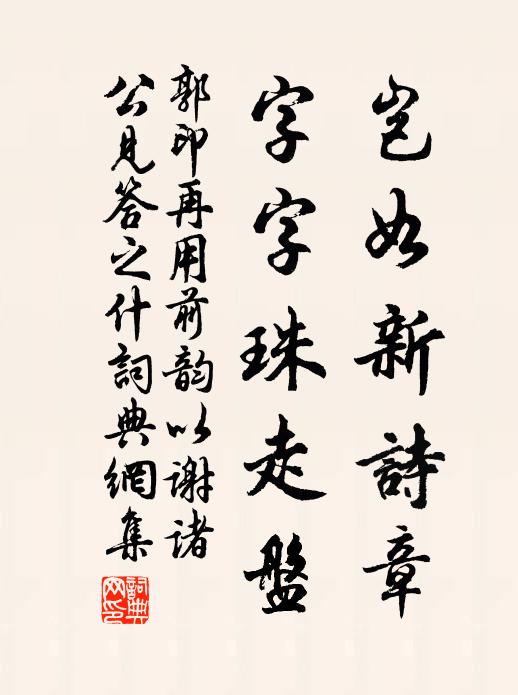 豈如新詩章
字字珠走盤
郭印再用前韵以谢诸
公見答之什詞典網集
詞典網印